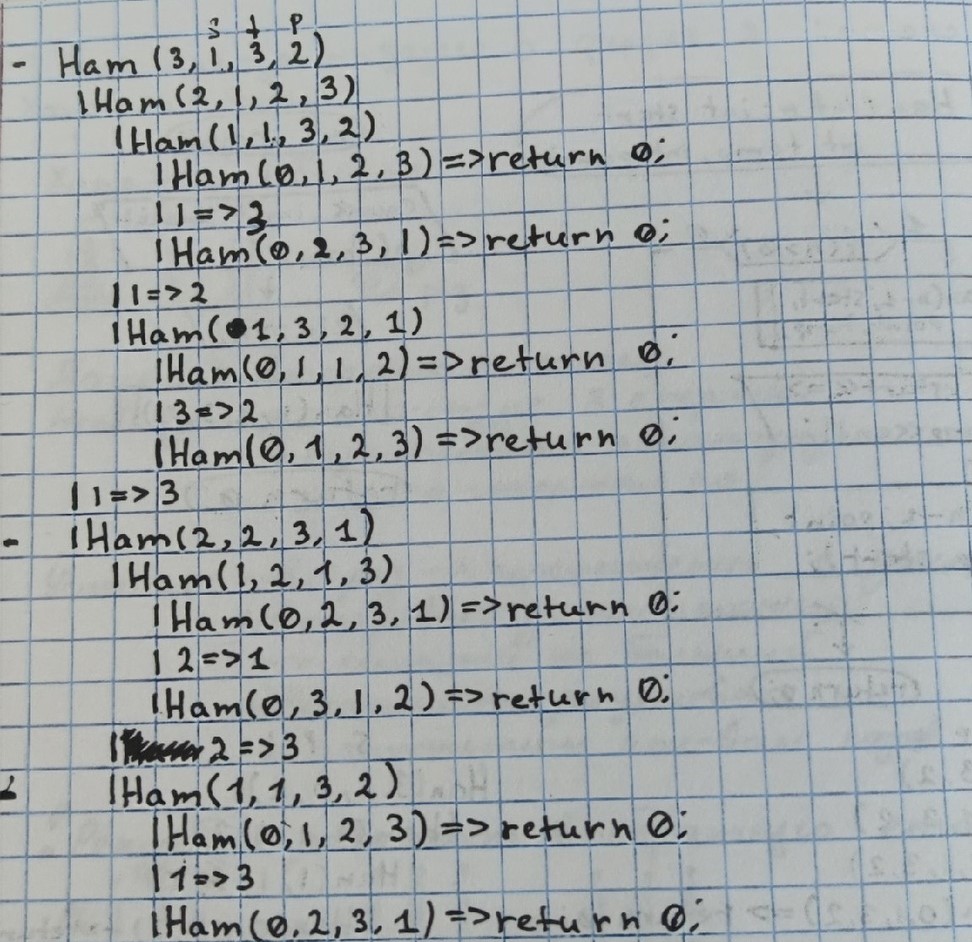 s t p
- Ham (3, 1, 3, 2)
|Ham(2, 1, 2, 3)
|Ham(1, 1, 3, 2)
|Ham(0, 1, 2, 3) => return 0;
| 1 => 3
|Ham(0, 2, 3, 1) => return 0;
| 1 => 2
|Ham(1, 3, 2, 1)
|Ham(0, 1, 1, 2) => return 0;
| 3 => 2
|Ham(0, 1, 2, 3) => return 0;
| 1 => 3
- |Ham(2, 2, 3, 1)
|Ham(1, 2, 1, 3)
|Ham(0, 2, 3, 1) => return 0;
| 2 => 1
|Ham(0, 3, 1, 2) => return 0;
| 2 => 3
|Ham(1, 1, 3, 2)
|Ham(0, 1, 2, 3) => return 0;
| 1 => 3
|Ham(0, 2, 3, 1) => return 0;